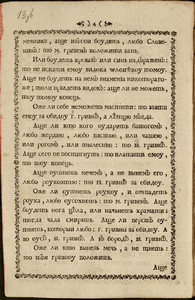 136
4
мечникѡ, аще изгои будетъ, любо Слове-
нинъ: то м҃ гривенъ положити занъ.
Или будетъ кровавъ или синь надраженъ:
то не искати ему видока человѣку тому.
Аще не будетъ на немъ знамени никотораго-
же; то ли прїидетъ видокъ: аще ли не можетъ,
ту тому конецъ.
Оже ли себе не можетъ мстити: то взяти
ему за обиду г҃ гривнѣ, а лѣтцю мзда.
Аще ли кто кого ударитъ батогомъ
любо жердью, любо пястью, или чашею
или рогомъ, или тылеснїю: то в҃і гривнѣ.
Аще сего не постигнутъ: то платити ему,
то ту конецъ.
Аще утнетъ мечемъ, а не вынемъ его,
любо рукоятью: то в҃і гривнѣ за обиду.
Оже ли утнетъ руку, и отпадетъ
рука, любо усохнетъ: то м҃ гривенъ. Аще
будетъ нога цѣла, или начнетъ храмати
тогда чада смирятъ. Аще ли перстъ
утнетъ, который любо: г҃ гривны за обиду. А
во усѣ, в҃і гривнѣ. А въ бородѣ, в҃і гривнѣ.
Оже ли кто вынезъ мечь, а не тнетъ:
то тъи гривну положитъ.
Аще